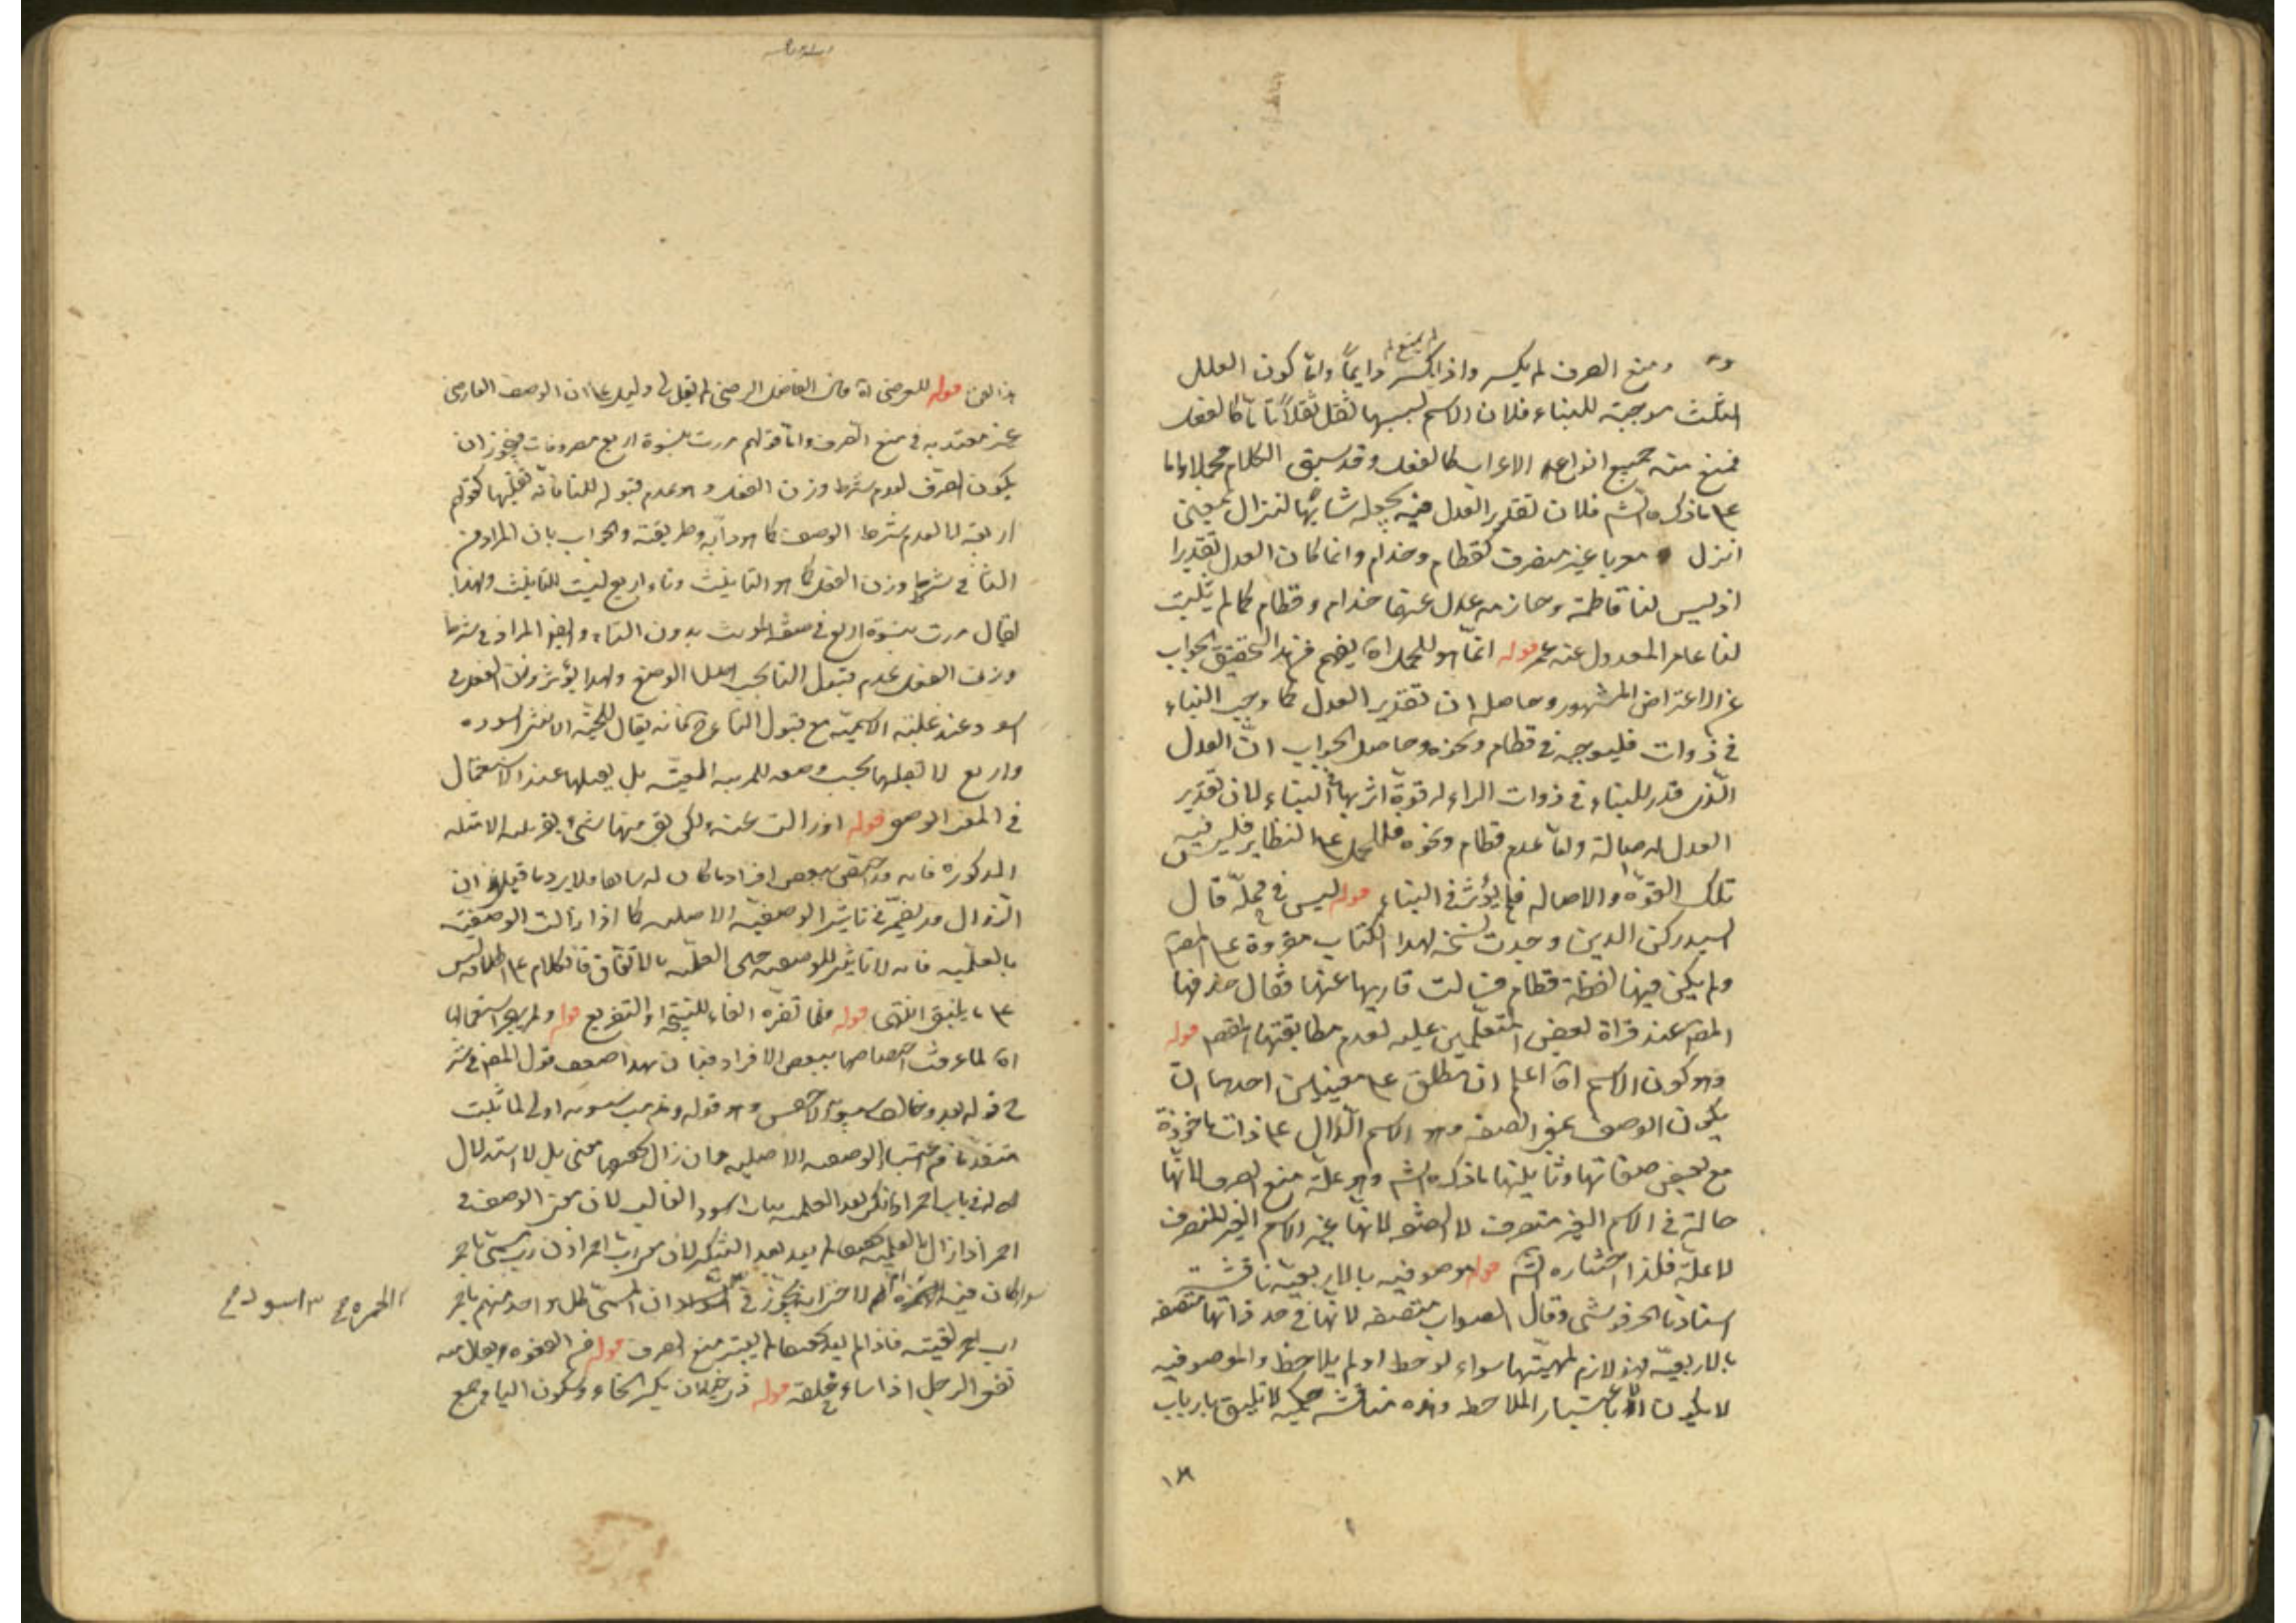 ومنع الصرف لم يكسر واذا لم يكسر دايماً واما كون العلل
الثلث موجبة للبناء فلان الاسم بسببها ثقل ثقلاً تاماً كالفعل
فمنع منه جميع انواع الاعراب كالفعل وقد سبق الكلام مجملا واما
على ما ذكره الشم فلان تقدير العدل فيه يجعله مشابهاً لنزال بمعنى
انزل معربا غير منصرف كقطام وحذام وانما كان العدل تقديرا
اذ ليس لنا قاطمة وحازمه عدل عنها حذام وقطام كما لم يثبت
لنا عامر المعدول عنه عمر قوله انما هو للحمل اه يفهم من هذا التحقيق الجواب
عن الاعتراض المشهور وحاصله ان تقدير العدل كما وجب البناء
في ذوات فليوجبه في قطام ونحوه وحاصل الجواب انّ العدل
الذى قدر للبناء في ذوات الراء له قوة اثر بها في البناء لان تقدير
العدل له اصالة واما عدم قطام ونحوه فللحمل على النظاير فليس فيه
تلك القوة والاصاله فلم يؤثر في البناء قوله ليس في محلّه قال
السيد ركن الدين وجدت نسخة لهذا الكتاب مقروة على المصم
ولم يكن فيها لفظة قطام فسالت قاريها عنها فقال حذفها
المصم عند قراة بعض المتعلمين عليه لعدم مطابقتها المقصم قوله
وهو كون الاسم اه اعلم ان مطلق على معنيين احدهما ان
يكون الوصف بمعنى الصفه وهو الاسم الدّال على ذات ماخوذة
مع بعض صفاتها وثانيهما ما ذكره الشم وهو علّة منع الصرف لانها
حالة في الاسم الغير منصرف لا الصفة لانها عين الاسم الغير المنصرف
لا علّة فلذا اختاره الشم قوله موصوفيه بالاربعيّة ناقشت
استادنا الحرفوشى وقال الصواب متصفه لانها في حد ذاتها متصفه
بالاربعيّه فهو لازم لمهيتها سواء لوحظ او لم يلاحظ والموصوفيه
لا يكون الا باعتبار الملاحظ وهذه مناقشة حكميه لا تليق بارباب
١٨
هذا الفن قوله للعرضى اه قال الفاضل الرضى لم يقل لى دليل على ان الوصف العارضى
غير معتد به في منع الصرف واما قولهم مررت بنسوة اربع مصروفات فيجوز ان
يكون الصرف لعدم شرط وزن الفعل وهو عدم قبوله للتا فانه تقبلها كقولهم
اربعة لا لعدم شرط الوصف كما هو دابه وطريقته والجواب بان المراد من
التا في شرط وزن الفعل كما هو التانيث وتاء اربع ليست للتانيث ولهذا
يقال مررت بنسوة اربع في صفة المونث بدون التاء وايضا المراد في شرط
وزن الفعل عدم قبول التا بحسب اصل الوضع ولهذا يؤثر وزن الفعل في
اسود عند غلبته الاسميّة مع قبول التا ح فانه يقال للحيّة الانثى اسوده
واربع لا تقبلها بحسب وضعه للمرتبه المعينّه بل يقبلها عند الاستعمال
في المعنى الوصفى قوله اذ زالت عنه بالكليه منها شىء بقرينة الامثله
المذكوره فانه قد بقى بعض افراد ما كان له سالفا فلا يرد ما قيل ان
الزوال قد يضرّ في تاثير الوصفيّه الاصليه كما اذا زالت الوصفيّه
بالعلميّه فانه لا تاثير للوصفيه حينئذ العلميّه بالاتفاق فالكلام على اطلاقه ليس
على ما ينبغى انتهى قوله فلما تقرّه الفاء للنتيجة او التفريع قوله ولم يجز استعمالها
اه لما عرفت اختصاصها ببعض الافراد فبان بهذا ضعف قول المصم في شر
ح قوله بعد وخالف سيبويه الاخفش وهو قوله ومذهب سيبويه اولى لما ثبت
متقدما من اعتبار الوصفيه الاصليه وان زال تحقيقها معنى بل لا استدلال
له في باب احمر اذا نكر بعد العلميه بباب اسود الغالب لان معنى الوصف في
احمر اذا زال بالعلميه تحقيقا لم يعد بعد التنكير لان معنى رب احمر اذن رب مسمّى باحمر
سواء كان فيه الحمرة ام لا ان المسمّى لكل واحد منهم باحمر
لقيته فاذا لم يعد تحقيقها لم يعتبر منع الصرف قوله
الرجل اذا ساء خلقه قوله ذى خيلان بكسر الخاء وسكون الياء جمع
الحمره اسود